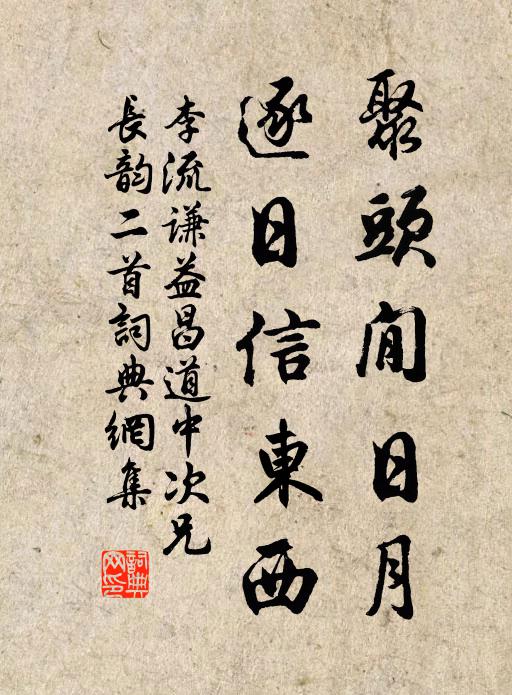 聚頭閒日月
逐日信東西
李流謙益昌道中次兄
長韵二首詞典網集
詞典
网印